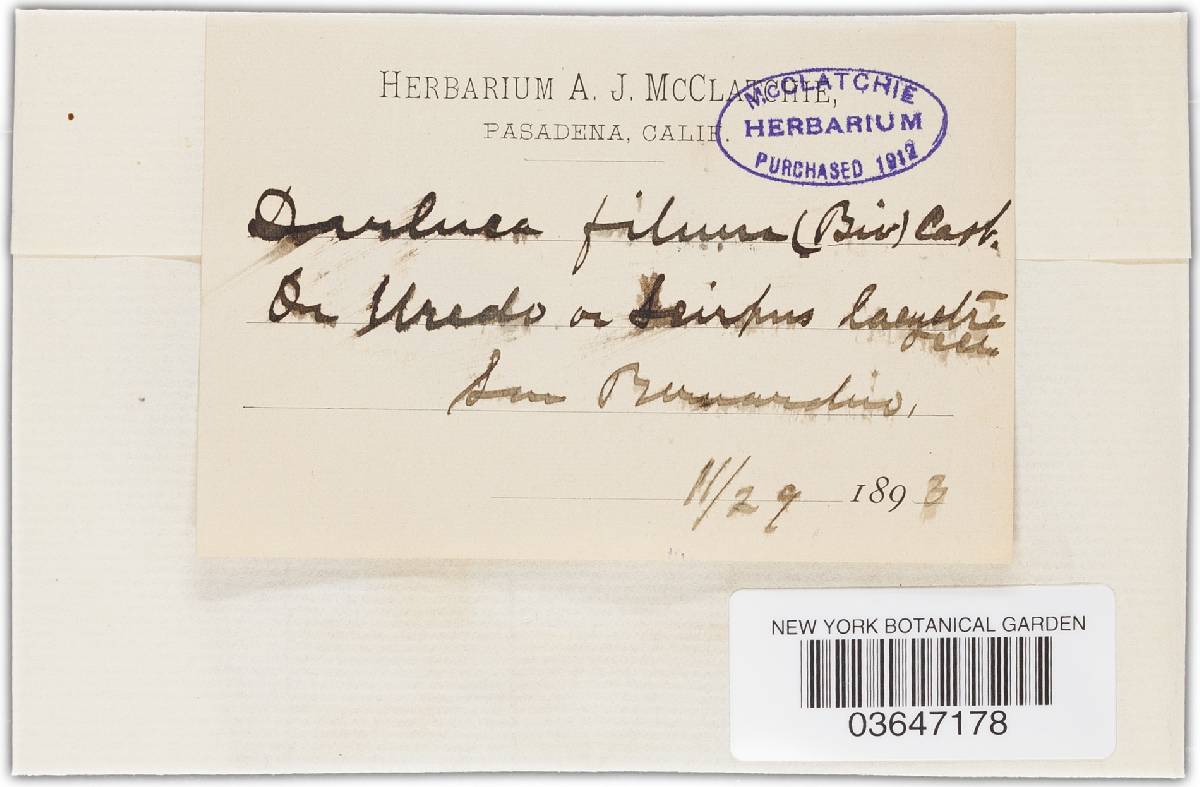 HERBARIUM A. J. MCCLATCHIE,
PASADENA, CALIF.
MCCLATCHIE
HERBARIUM
PURCHASED 1912
Darluca filum (Biv) Cast.
On Uredo on Scirpus lacustris
occ.
San Bernardino,
11/29 1893
NEW YORK BOTANICAL GARDEN
03647178